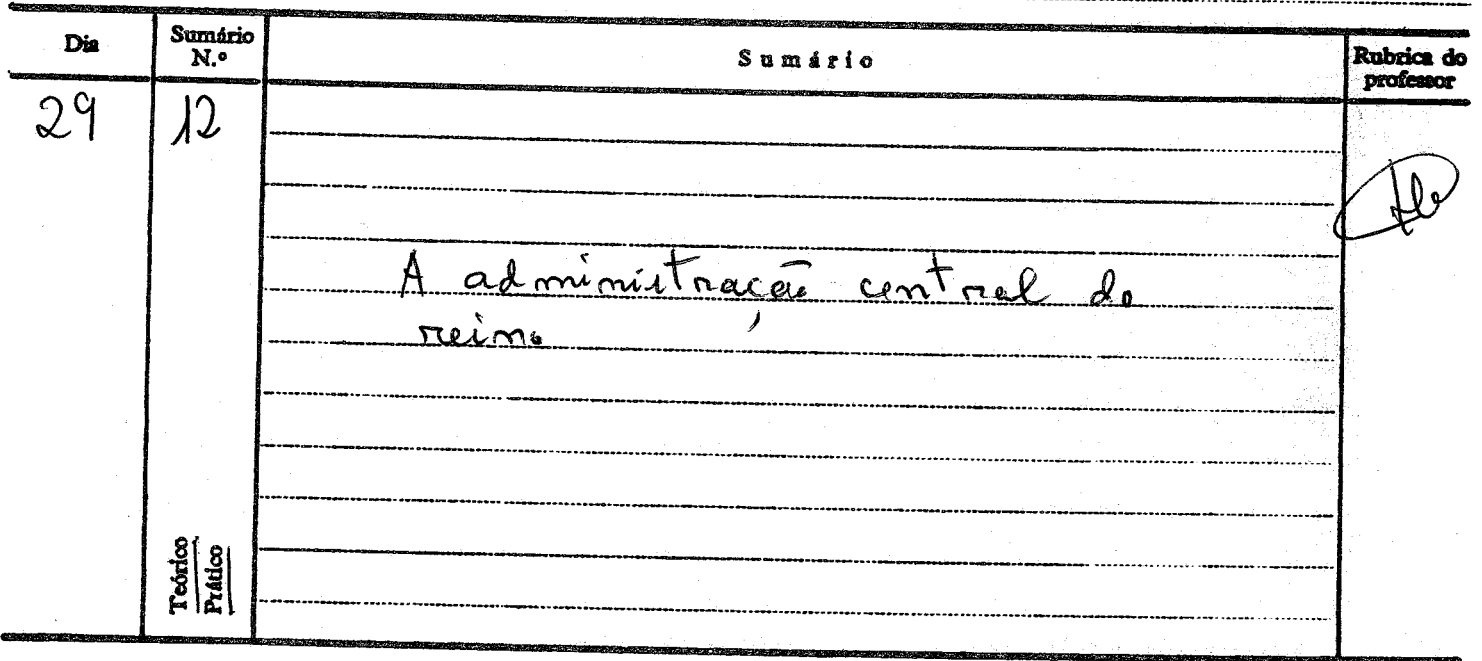 Dia
Sumário N.º
Sumário
Rubrica do professor
29
12
A administração central do
reino
Teórico
Prático